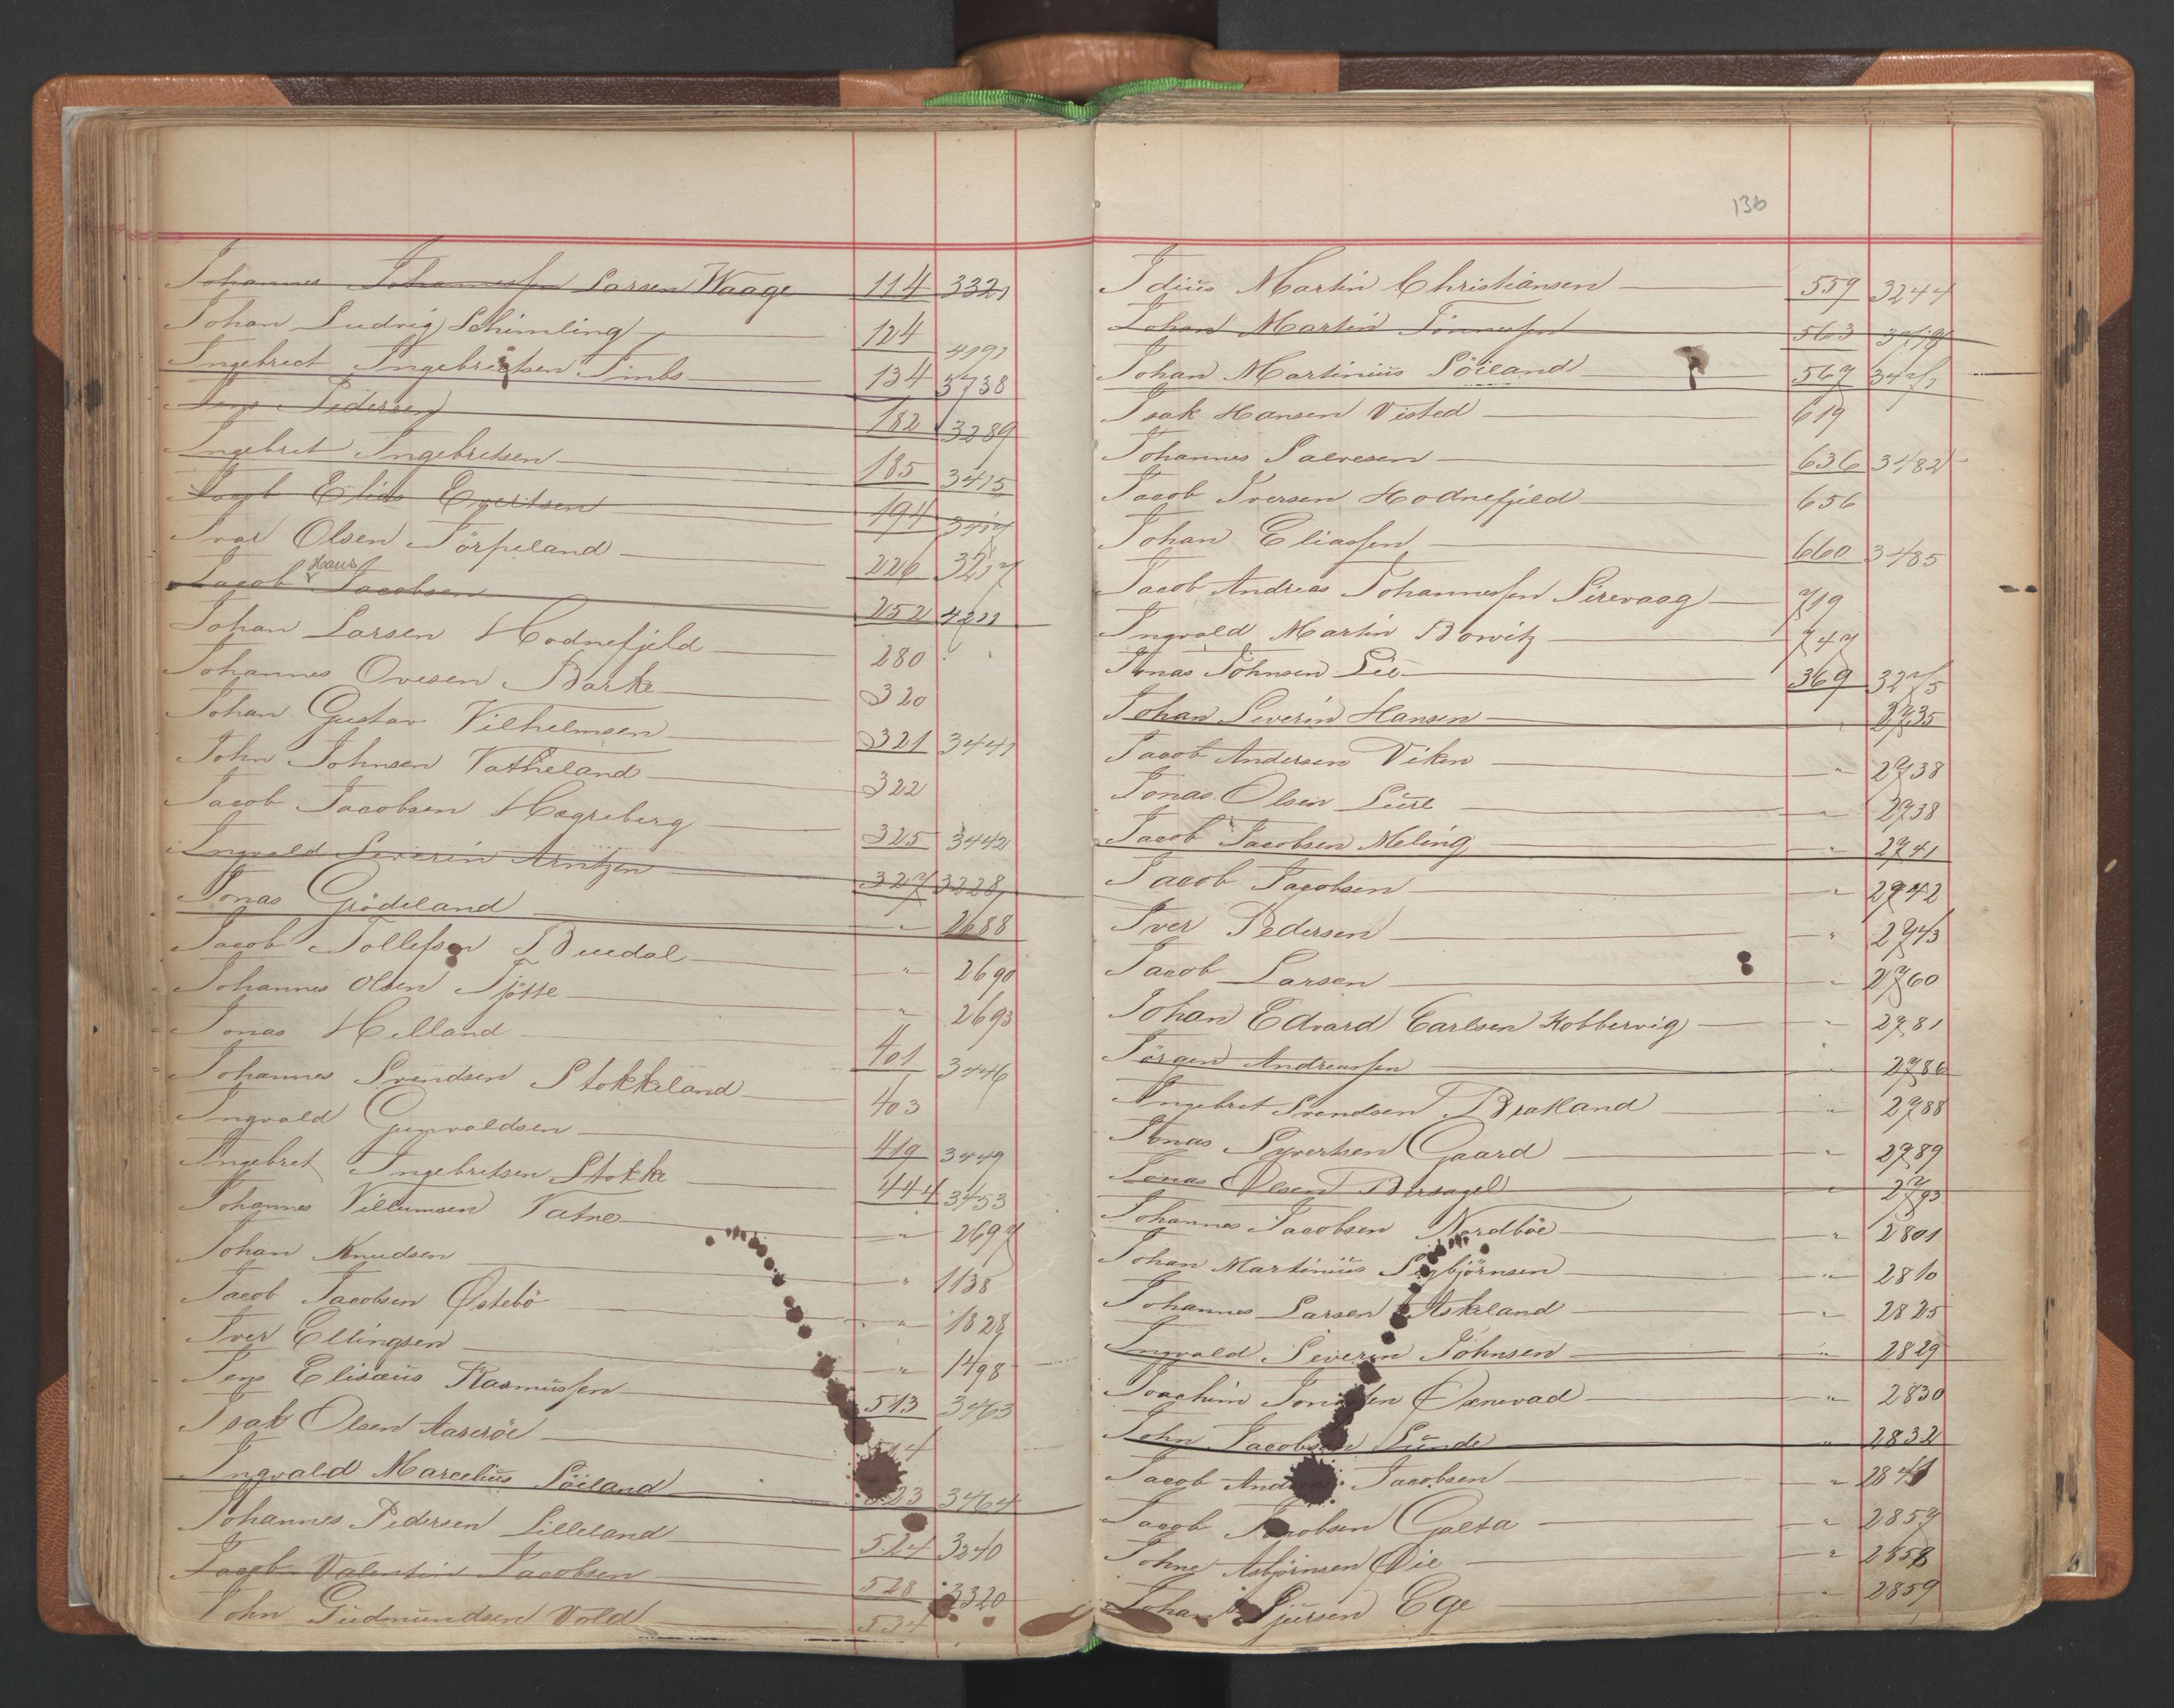 Johannes Johannessen Larsen Waage 114 3321
Johan Ludvig Schimling 124 4191
Ingebrect Ingebrictsen Timbs 134 3738
Jens Pedersen 182 3289
Ingebret Ingebretsen 185 3415
Jacob Elias Evertsen 194 3417
Ivar Olsen Törpeland 226 3217
Jacob Hans Jacobsen 252 4211
Johan Larsen Hodnefjeld 280
Johannes Ovesen Barke 320
Johan Gustav Vilhelmsen 321 3441
John Johnsen Vatneland 322
Jacob Jacobsen Hagreberg 325 3442
Ingvald Severin Arntzen 327 3228
Jonas Gjödeland " 2688
Jacob Tollefsen Buedal " 2690
Johannes Olsen Tjötte " 2693
Jonas Helland 401 3446
Johannes Svendsen Stokkeland 403
Ingvald Gunvaldsen 419 3449
Ingebret Ingebretsen Stokke 444 3453
Johannes Villumsen Vatne " 2697
Johan Knudsen " 1138
Jacob Jacobsen Østebö " 1828
Iver Ellingsen " 1498
Jens Elisæus Rasmussen 513 3463
Isak Olsen Aaseröe 514
Ingvald Marcelius Söiland 523 3464
Johannes Pedersen Lilleland 524 3240
Jacob Valentin Jacobsen 528 3320
John Gudmundsen Vold 534
136
Idius Martin Christiansen 559 3244
Johan Martin Tönnessen 563
Johan Martinius Söiland 567 3471
Isak Hansen Visted 619
Johannes Salvesen 636 3482
Jacob Iversen Hodnefjeld 656
Johan Eliassen 660 3485
Jacob Andreas Johannessen Sirevaag 719
Ingvald Martin Bowitz 747
Jonas Johnsen Lie 369 3275
Johan Severin Hansen " 2735
Jacob Andersen Viken " 2738
Jonas Olsen Lure " 2738
Jacob Jacobsen Meling " 2741
Jacob Jacobsen " 2742
Iver Pedersen " 2743
Jacob Larsen " 2760
Johan Edvard Carlsen Kobbervig " 2781
Jörgen Andreassen " 2786
Ingebret Svendsen Brakland " 2788
Jonas Syvertsen Gaard " 2789
Jonas Olsen Bersagel " 2793
Johannes Jacobsen Nordböe " 2801
Johan Martinius Sigbjörnsen " 2810
Johannes Larsen Askeland " 2825
Ingvald Severin Johnsen " 2829
Joachim Jonassen Oxnevad " 2830
John Jacobsen Lunde " 2832
Jacob Andreas Jacobsen " 2841
Jacob Jacobsen Galta " 2857
Johne Asbjörnsen Oie " 2858
Johan Sjursen Ege " 2859